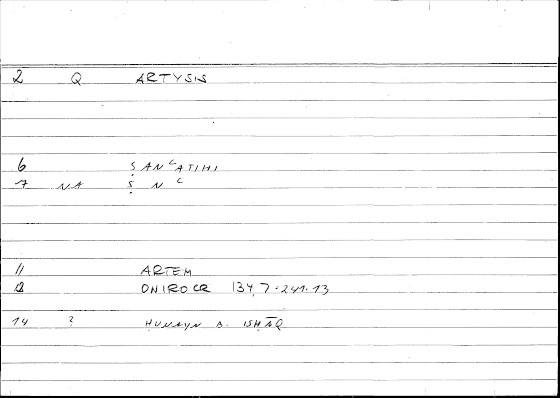 2 Q ARTYSIS
6 ṢANʿATIHI
7 NA Ṣ N ʿ
11 ARTEM
12 ONIROCR 134,7-241.13
14 ? ḤUNAYN B. ISḤĀQ